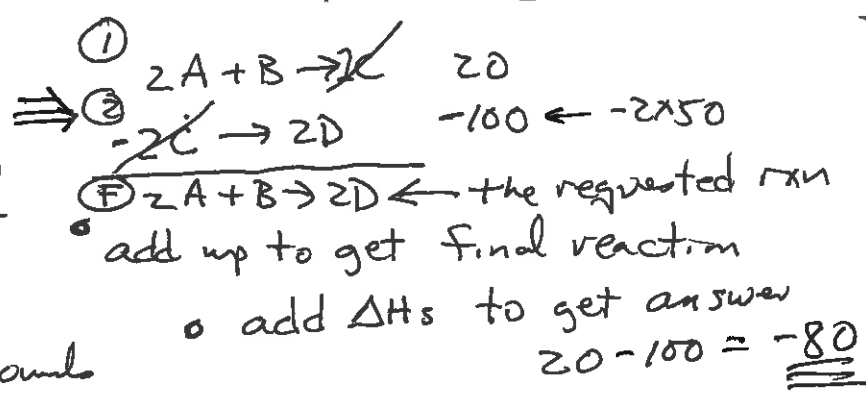 ①
2A + B → 2C 20
⇒ ② -2C → 2D -100 ← -2×50
Ⓕ 2A + B → 2D ← the requested rxn
• add up to get final reaction
• add ΔHs to get answer
20 - 100 = -80